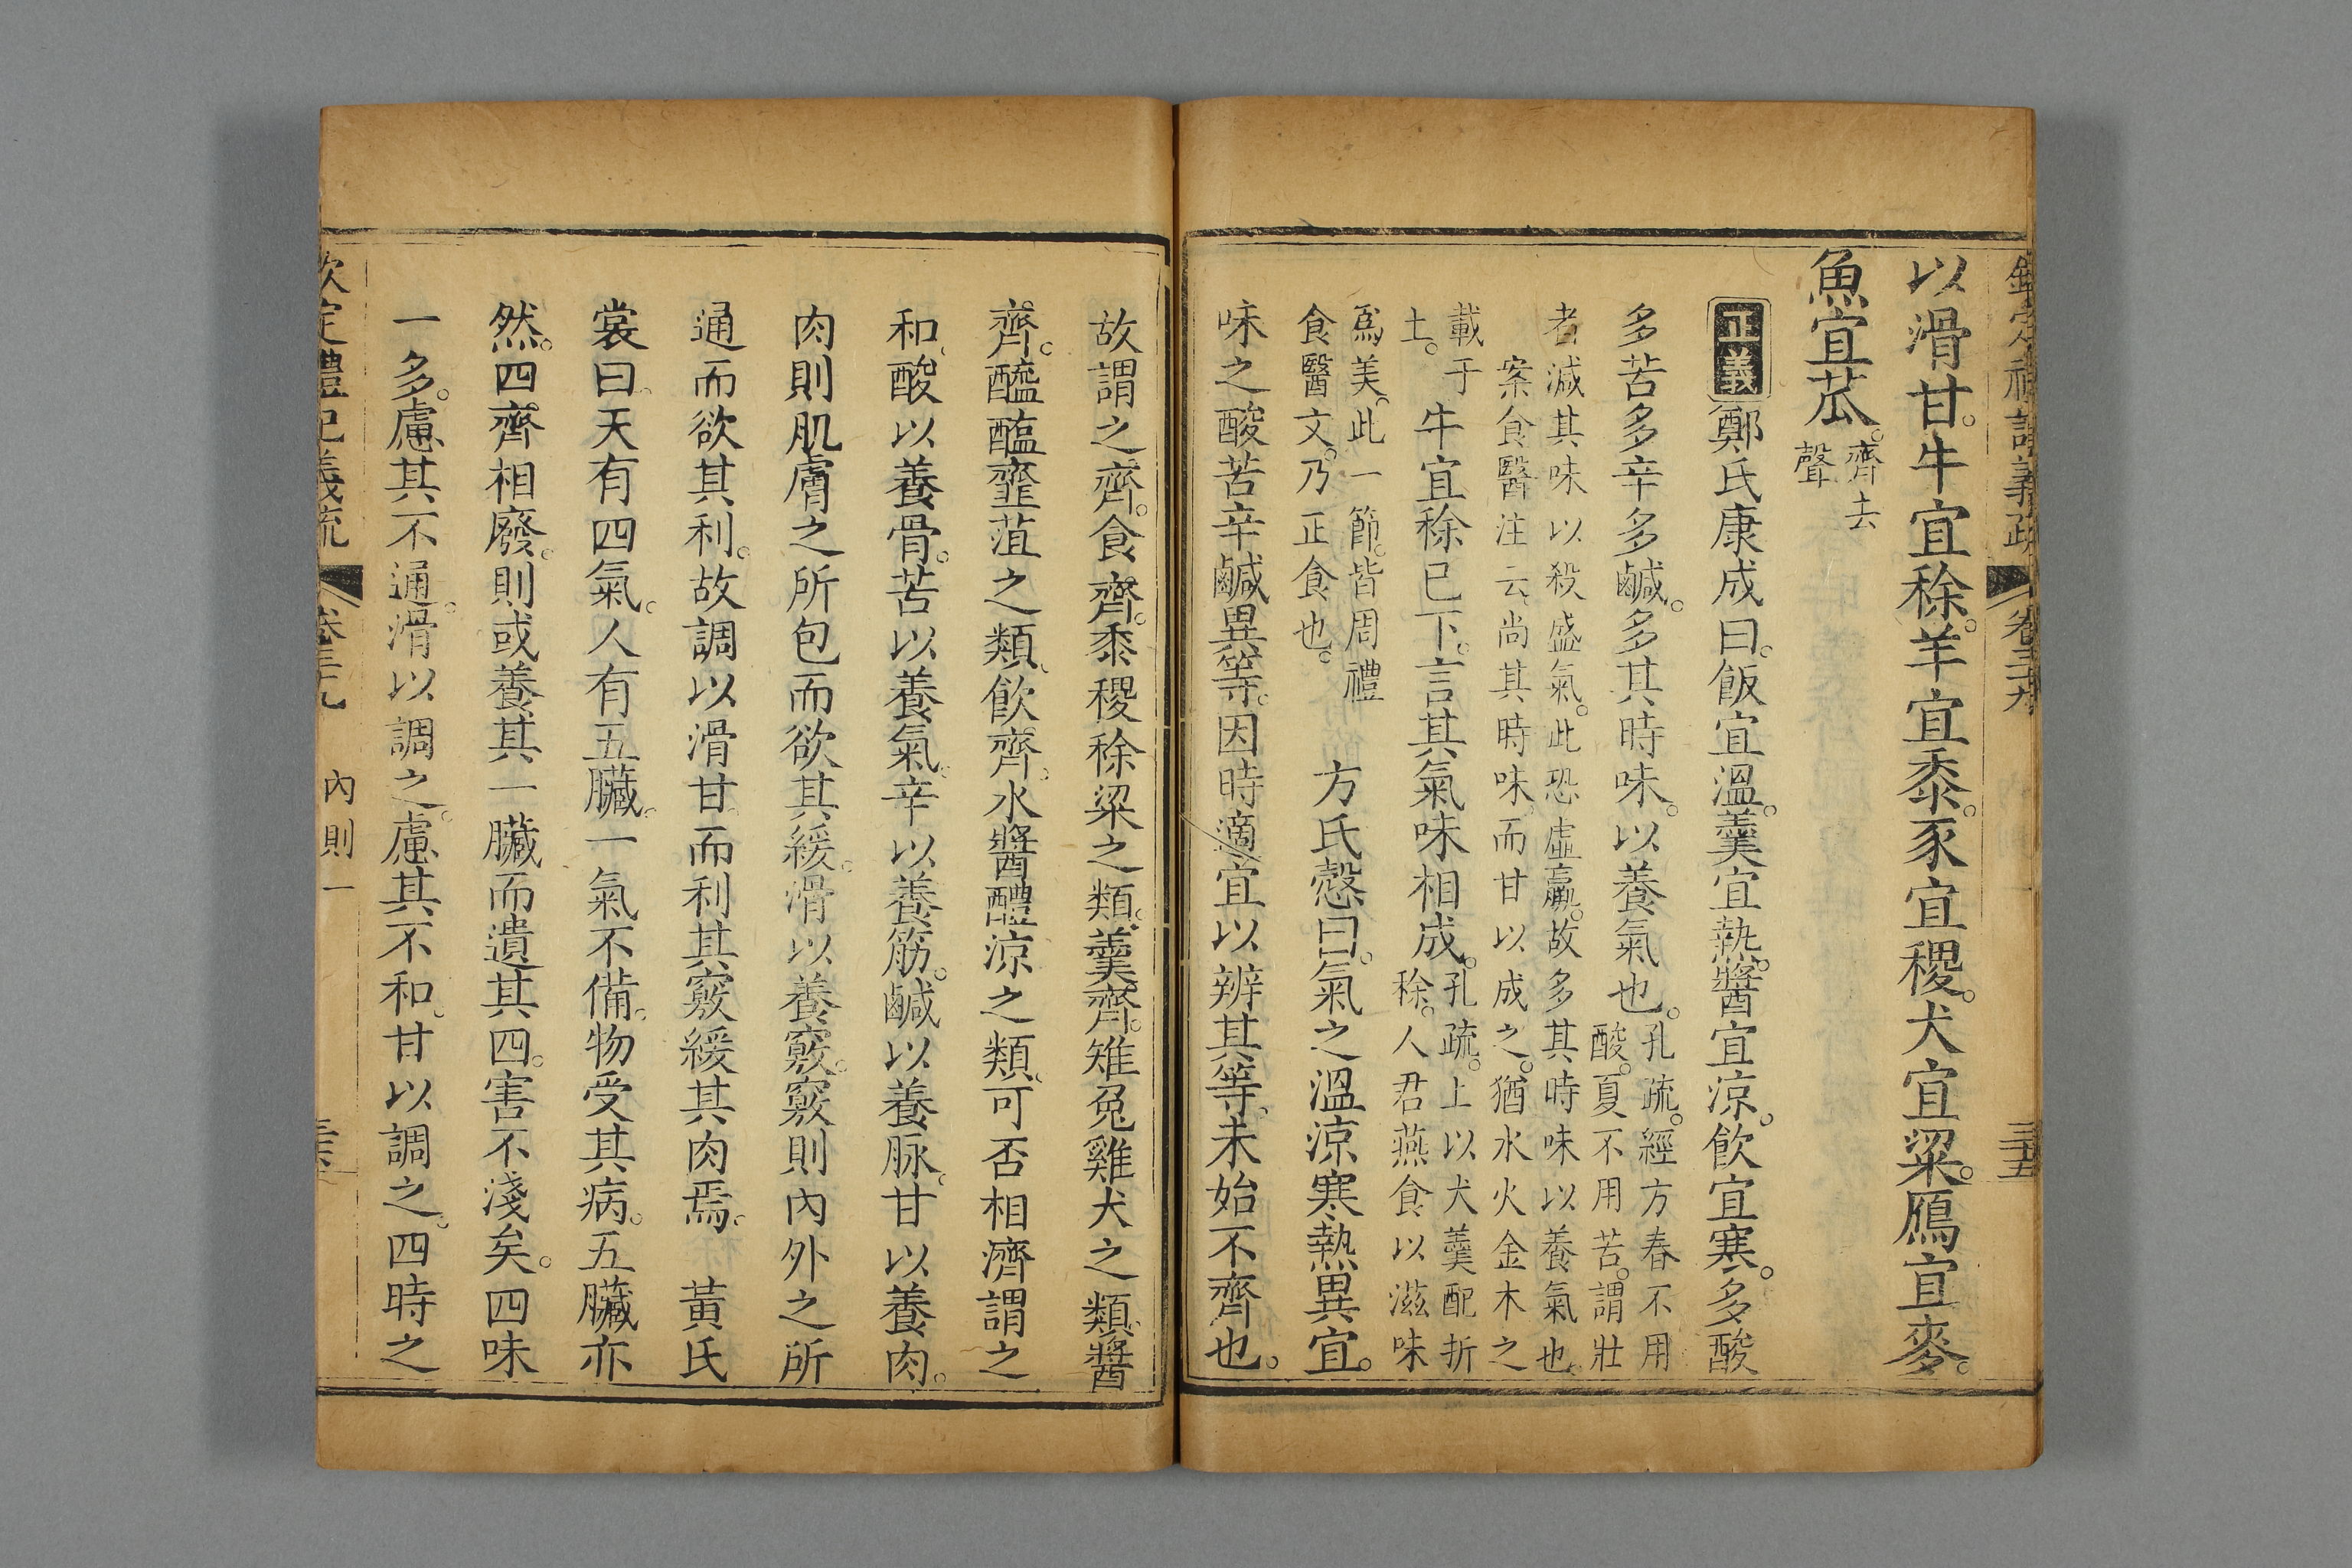 欽定禮記義疏　卷三十九　三十五
以滑甘。牛宜稌。羊宜黍。豕宜稷。犬宜粱。鴈宜麥。
魚宜苽。齊去
聲
正義鄭氏康成曰。飯宜溫。羹宜熱。醬宜涼。飲宜寒。多酸
多苦多辛多鹹。多其時味。以養氣也。孔疏。經方春不用
酸。夏不用苦。謂壯
者減其味以殺盛氣。此恐虛羸。故多其時味以養氣也。
案食醫注云尚其時味而甘以成之。猶水火金木之
載于
土。牛宜稌已下。言其氣味相成。孔疏。上以犬羹配折
稌。人君燕食以滋味
爲美。此一節。皆周禮
食醫文。乃正食也。　方氏慤曰。氣之溫涼寒熱異宜。
味之酸苦辛鹹異等。因時適宜以辨其等。未始不齊也。
故謂之齊。食齊。黍稷稌粱之類。羹齊。雉兔雞犬之類。醬
齊。醯醢虀菹之類。飲齊。水醬醴涼之類。可否相濟謂之
和。酸以養骨。苦以養氣。辛以養筋。鹹以養脉。甘以養肉。
肉則肌膚之所包而欲其緩。滑以養竅。竅則內外之所
通而欲其利。故調以滑甘而利其竅緩其肉焉。　黃氏
裳曰。天有四氣。人有五臟。一氣不備。物受其病。五臟亦
然。四齊相廢。則或養其一臟而遺其四。害不淺矣。四味
一多。慮其不通。滑以調之。慮其不和。甘以調之。四時之
欽定禮記義疏　卷三十九　內則一　三十六